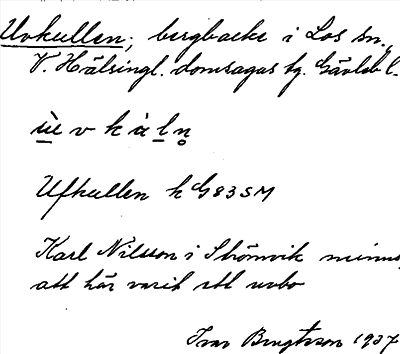 Uvkullen; bergbacke i Los sn.
V. Hälsingl. domsagas tg. Gävleb l.
ùvkàln
Ufkullen k G83SM
Karl Nilsson i Strömvik minns
att här varit ett uvbo
Ivar Bengtsson 1937